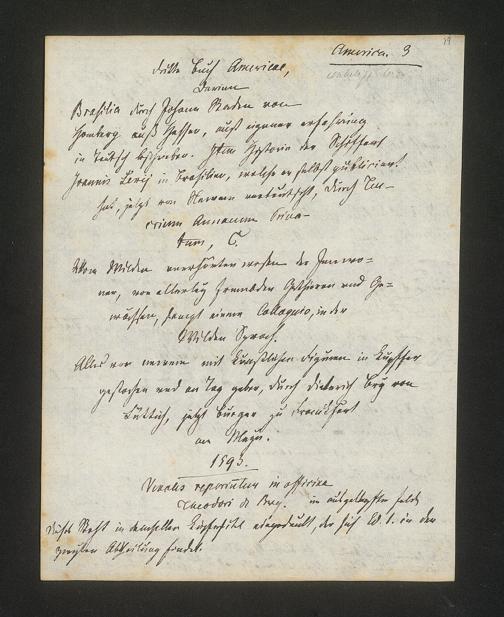 19
America. 3
dritte Buch Americae,
Darinn
Brasilia durch Johann Staden von
Homberg auß Hessen, auß eigener erfahrung
in Teutsch beschrieben. Item Historia der Schiffart
Joannis Lerij in Brasilien, welche er selbst publiciert
hat, jetzt von Newem verteutscht, Durch Teu-
crium Annaeum Priva-
tum, C.
Vom Wilden unerhörten wesen der Innwo-
ner, von allerley frembden Gethieren und Ge-
wächsen, sampt einem Colloquio, in der
Wilden Sprach.
Alles von newem mit künstlichen Figuren in Kupffer
gestochen und an Tag geben, durch Dieterich Bry von
Lüttich, jetzt Burger zu Franckfurt
am Mayn.
1593.
Venales reperiuntur in officina
Theodori de Bry.
Dieses steht in demselben eingedruckt, der sich in der
zweyten Abtheilung findet.